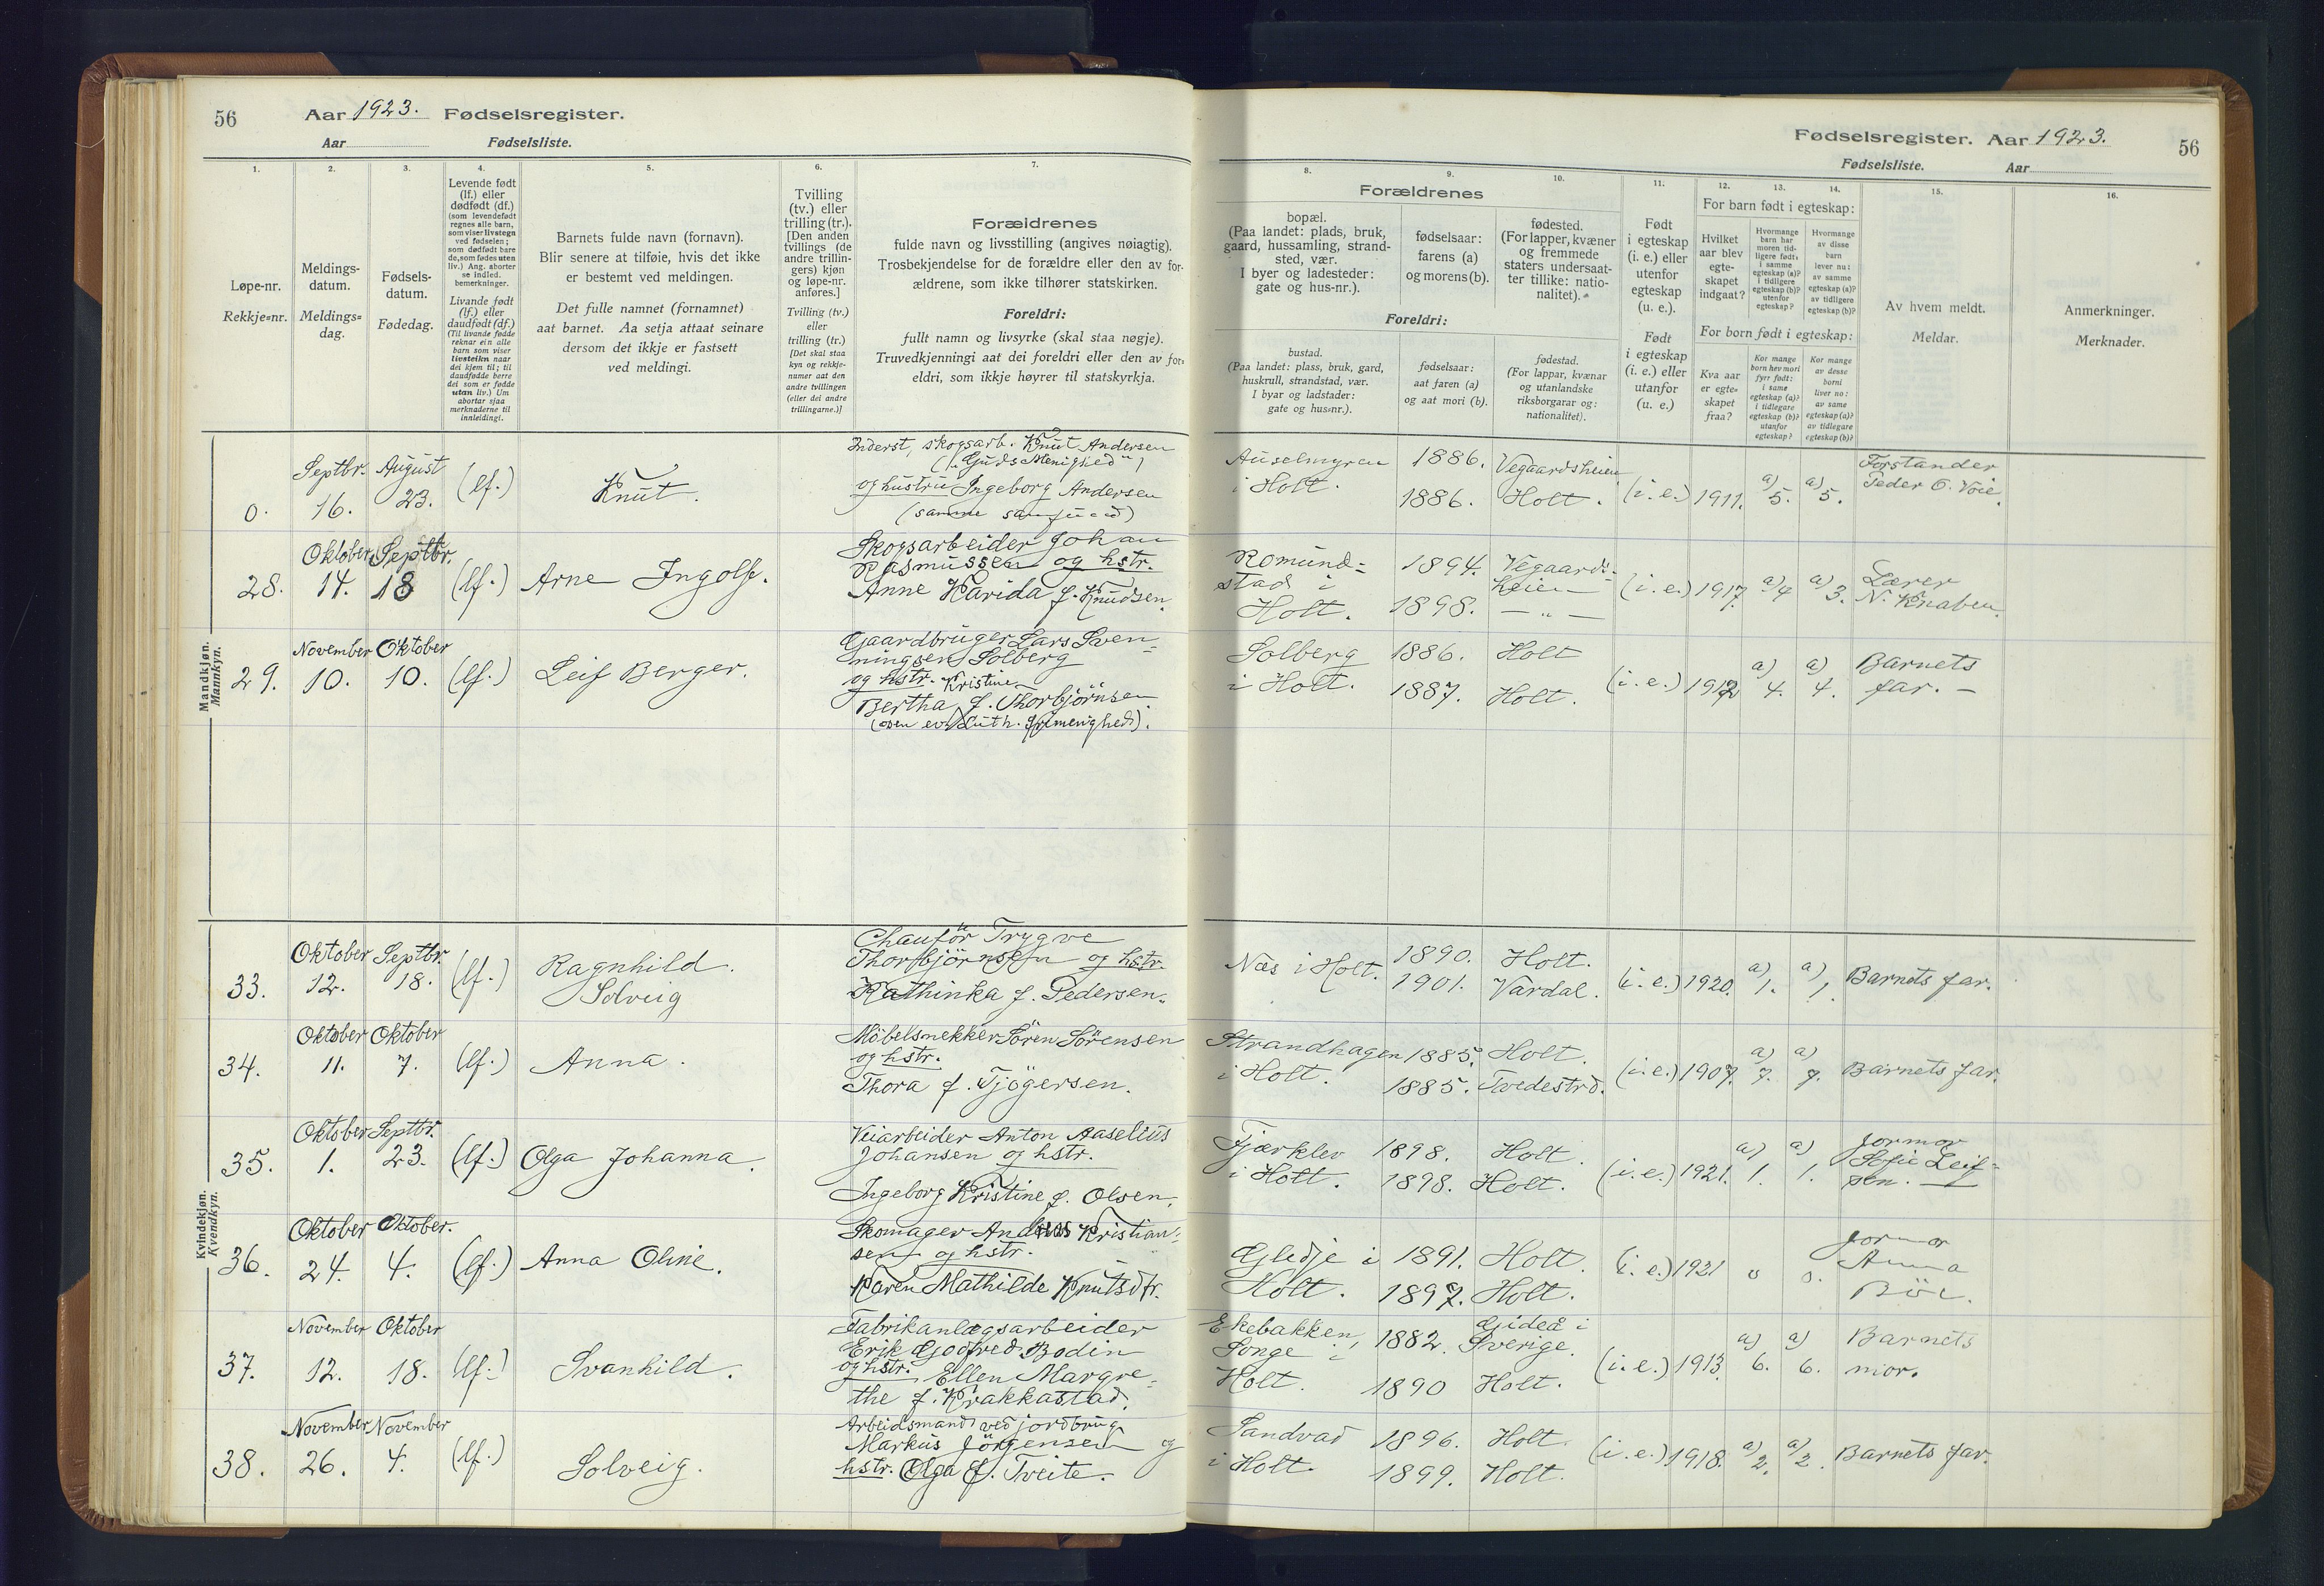 56
Aar 1923. Fødselsregister.
Aar Fødselsliste.
1.
2.
3.
4.
5.
6.
7.
Løpe-nr.
Rekkje=nr.
Meldings-
datum.
Meldings=
dag.
Fødsels-
datum.
Fødedag.
Levende født
(lf.) eller
dødfødt (df.)
(som levendefødt
regnes alle barn,
som viser livstegn
ved fødselen;
som dødfødt bare
de, som fødes uten
liv.) Ang. aborter
se indled.
bemerkninger.
Livande født
(lf.) eller
daudfødt (df.)
(Til livande fødde
reknar ein alle
barn som viser
livsteikn naar
dei kjem til; til
daudfødde berre
dei som er fødde
utan liv.) Um
abortar sjaa
merknaderne til
innleidingi.
Barnets fulde navn (fornavn).
Blir senere at tilføie, hvis det ikke
er bestemt ved meldingen.
Det fulle namnet (fornamnet)
aat barnet. Aa setja attaat seinare
dersom det ikkje er fastsett
ved meldingi.
Tvilling
(tv.) eller
trilling (tr.).
[Den anden
tvillings (de
andre trillin-
gers) kjøn
og løpe-nr.
anføres.]
Tvilling (tv.)
eller
trilling (tr.)
[Det skal staa
kyn og rekkje-
numer aat den
andre tvillingen
(eller dei andre
trillingarne.)]
Forældrenes
fulde navn og livsstilling (angives nøiagtig).
Trosbekjendelse for de forældre eller den av for-
ældrene, som ikke tilhører statskirken.
Foreldri:
fullt namn og livsyrke (skal staa nøgje).
Truvedkjenningi aat dei foreldri eller den av for-
eldri, som ikkje høyrer til statskyrkja.
Mandkjøn.
Mannkyn.
0.
Septbr.
16.
August
23.
(lf.)
Knut.
Inderst, skogsarb. Knut Andersen
("Guds Menighed")
og hustru Ingeborg Andersen
(samme samfund)
28.
Oktober
14.
Septbr.
18
(lf.)
Arne Ingolf.
Skogsarbeider Johan
Rasmussen og hstr.
Anne Harida f. Knudsen.
29.
November
10.
Oktober
10.
(lf.)
Leif Berger.
Gaardbruger Lars Sven-
ningsen Solberg
og hstr. Kristine
Bertha f. Thorbjörnsen.
(den ev. Luth. frimenighed).
Kvindekjøn.
Kvendkyn.
33.
Oktober
12.
Septbr.
18.
(lf.)
Ragnhild.
Solveig
Chauför Trygve
Thorbjörnsen og hstr.
Kathinka f. Pedersen.
34.
Oktober
11.
Oktober
7.
(lf.)
Anna.
Möbelsnekker Sören Sörensen
og hstr.
Thora f. Tjögersen.
35.
Oktober
1.
Septbr.
23.
(lf.)
Olga Johanna.
Veiarbeider Anton Aaselius
Johansen og hstr.
Ingeborg Kristine f. Olsen.
36.
Oktober
24.
Oktober.
4.
(lf.)
Anna Oline.
Skomager Andreas Kristian-
sen og hstr.
Karen Mathilde Knutsdtr.
37.
November
12.
Oktober
18.
(lf.)
Svanhild.
Fabrikanlægsarbeider
Erik Godfred Bodin
og hstr. Ellen Margre-
the f. Krakkastad.
38.
November
26.
November
4.
(lf.)
Solveig.
Arbeidsmand ved jordbrug
Markus Jörgensen og
hstr. Olga f. Tveite.
Fødselsregister. Aar 1923.
56
Fødselsliste. Aar
8.
9.
10.
11.
12.
13.
14.
15.
16.
Forældrenes
bopæl.
(Paa landet: plads, bruk,
gaard, hussamling, strand-
sted, vær.
I byer og ladesteder:
gate og hus-nr.).
fødselsaar:
farens (a)
og morens (b).
fødested.
(For lapper, kvæner
og fremmede
staters undersaat-
ter tillike: natio-
nalitet).
Foreldri:
bustad.
(Paa landet: plass, bruk, gard,
huskrull, strandstad, vær.
I byar og ladstader:
gate og hus=nr.).
fødselsaar:
aat faren (a)
og aat mori (b).
fødestad.
(For lappar, kvænar
og utanlandske
riksborgarar og:
nationalitet).
Født
i egteskap
(i. e.) eller
utenfor
egteskap
(u. e.).
Født
i egteskap
(i. e.) eller
utanfor
(u. e.)
For barn født i egteskap:
Hvilket
aar blev
egte-
skapet
indgaat?
Hvormange
barn har
moren tid-
ligere født:
i samme
egteskap (a)?
i tidligere
egteskap (b)?
utenfor
egteskap?
Hvormange
av disse
barn
lever nu:
av samme
egteskap (a)?
av tidligere
egteskap (b)?
For born født i egteskap:
Kva aar
er egte=
skapet
fraa?
Kor mange
born hev mori
fyrr født:
i same
egteskap (a)?
i tidlegare
egteskap (b)?
utanfor
egteskap?
Kor mange
av desse
borni
liver no:
av same
egteskap (a)?
av tidlegare
egteskap (b)?
Av hvem meldt.
Meldar.
Anmerkninger.
Merknader.
Auselmyren
i Holt.
1886.
1886.
Vegaardsheien
Holt.
(i. e.)
1911.
a) 5.
a) 5.
Forstander
Peder O. Voie
Romund=
stad i
Holt.
1894.
1898.
Vegaards-
heien
— " —
(i. e.)
1917.
a) 4
a) 3.
Lærer
N. Knaben
Solberg
i Holt.
1886.
1887.
Holt
Holt.
(i. e.)
1912
a) 4.
a) 4.
Barnets
far. —
Næs i Holt.
1890.
1901.
Holt.
Vardal.
(i. e.)
1920.
a) 1.
a) 1.
Barnets far.
Strandhagen
i Holt.
1885.
1885.
Holt.
Tvedestrd.
(i. e.)
1907.
a) 7.
a) 7.
Barnets far.
Fjærklev
i Holt.
1898.
1898.
Holt.
Holt.
(i. e.)
1921.
a) 1.
a) 1.
Jormor
Sofie Leif-
sen.
Gledje i
Holt.
1891.
1897.
Holt.
Holt.
(i. e.)
1921
0
0.
Jormor
Anna
Böe.
Ekebakken,
Songe i
Holt.
1882.
1890
Gideå i
Sverige.
Holt.
(i. e.)
1913.
a) 6.
a) 6.
Barnets
mor.
Sandvad
i Holt.
1896.
1899.
Holt.
Holt.
(i. e.)
1918.
a) 2.
a) 2.
Barnets far.